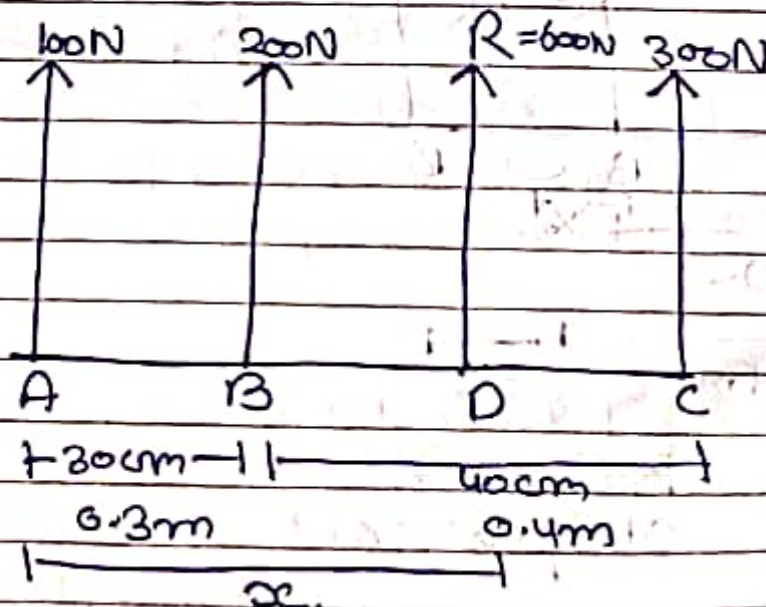 100N 200N R=600N 300N
A B D C
30cm 40cm
0.3m 0.4m
x